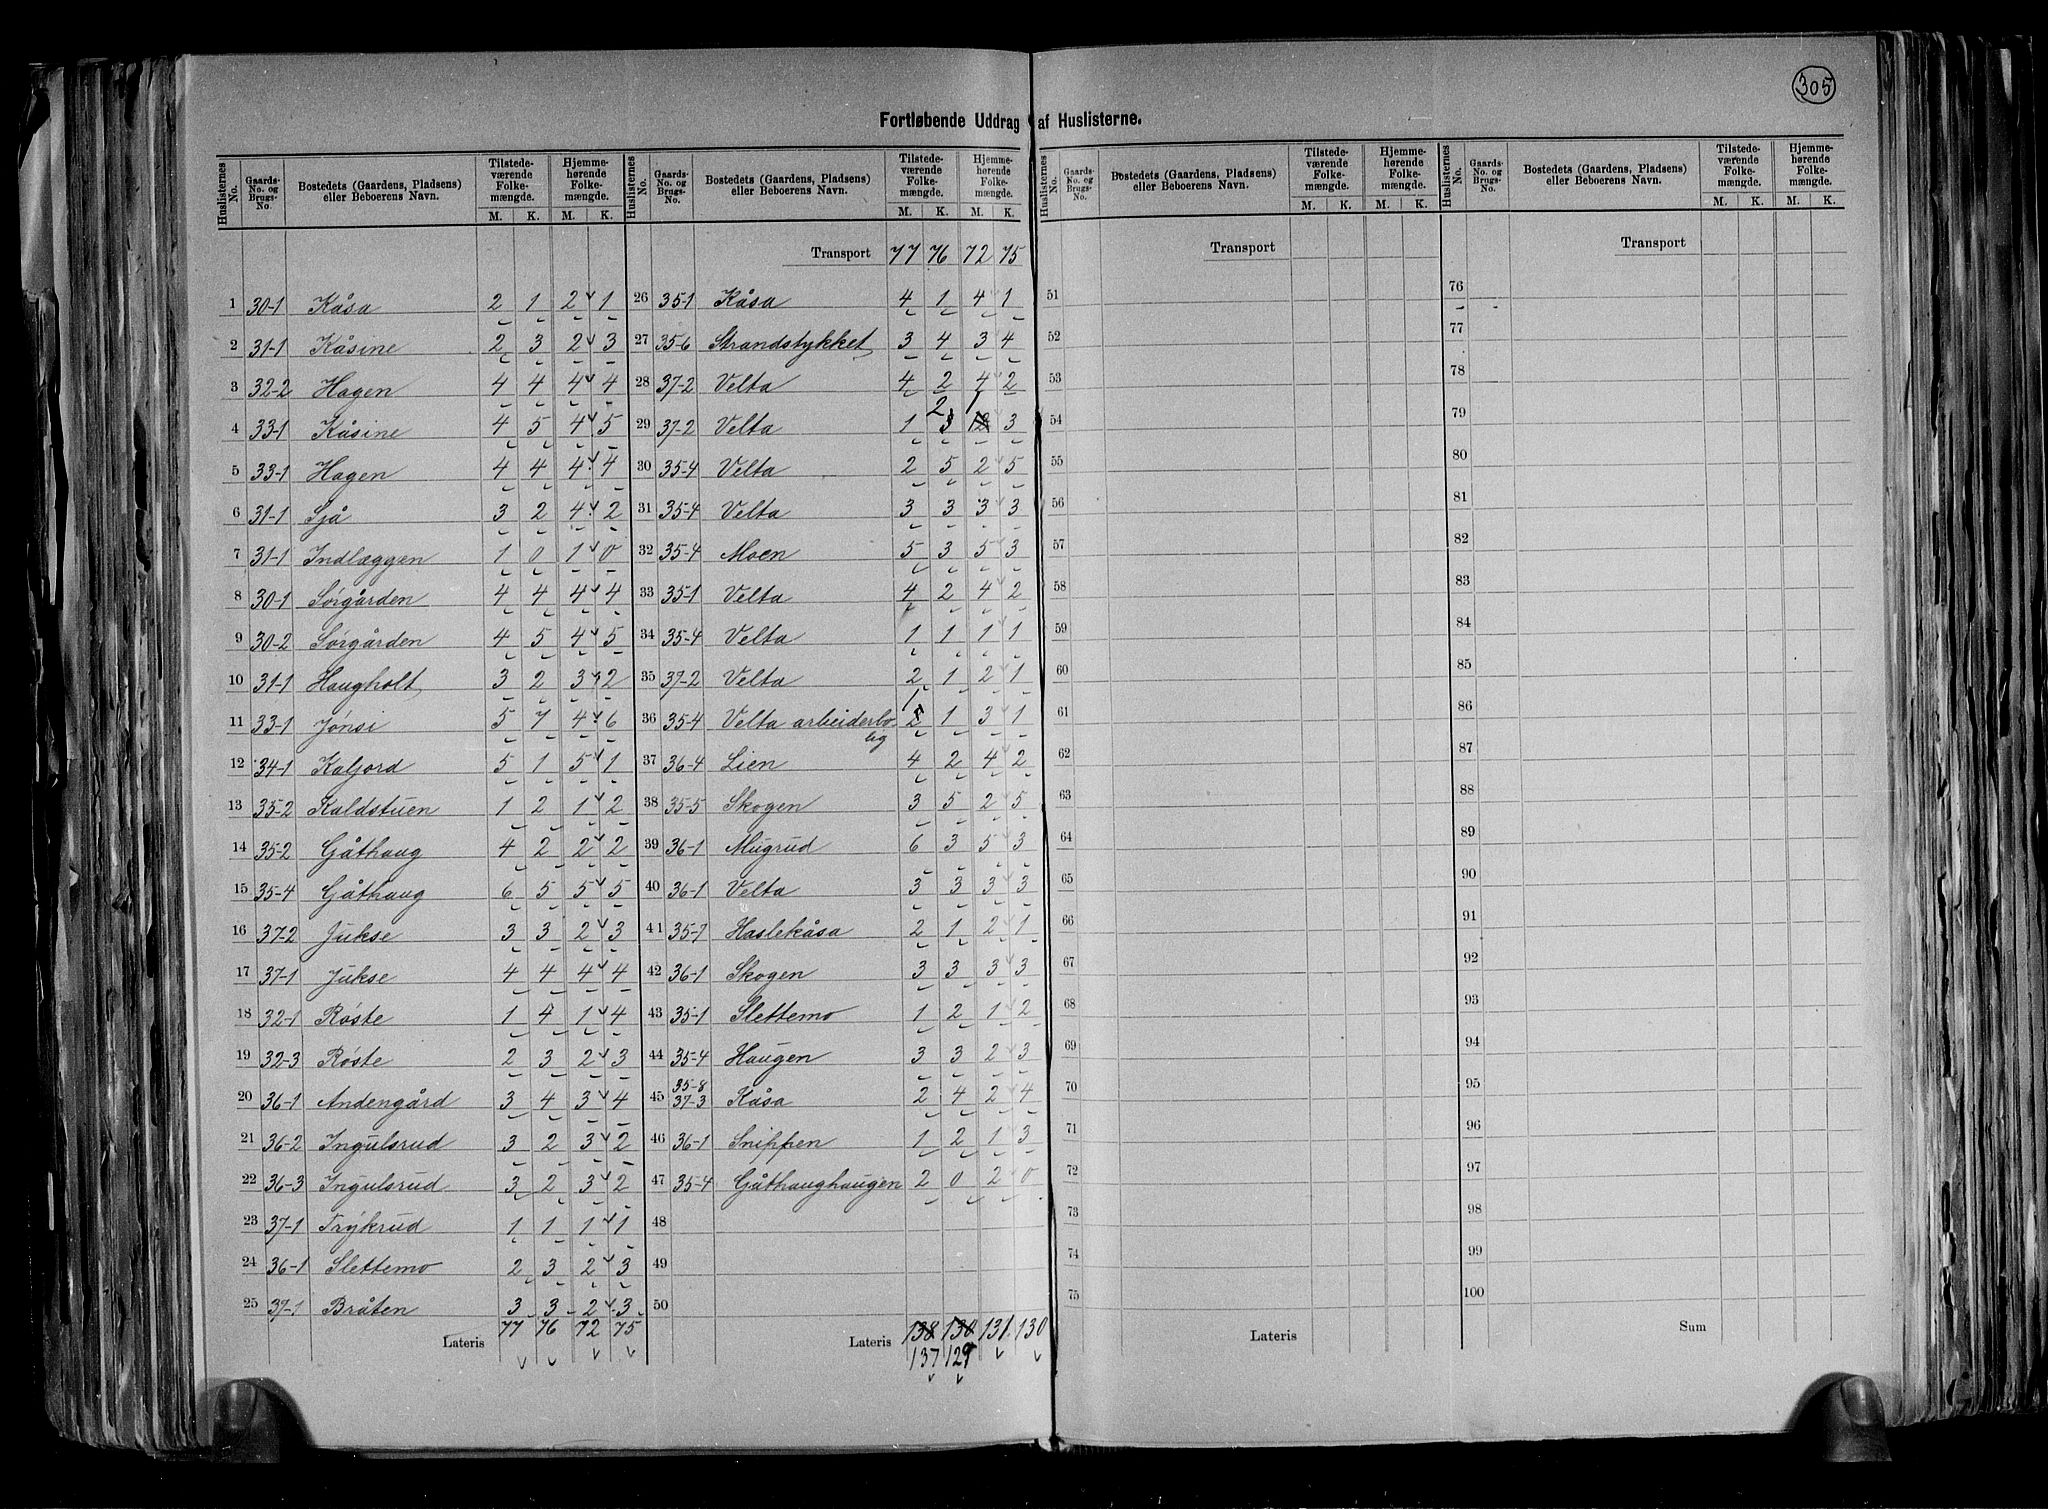 305
Fortløbende Uddrag af Huslisterne.
Huslisternes No. Gaards-No. og Brugs-No. Bostedets (Gaardens, Pladsens) eller Beboerens Navn. Tilstede-værende Folke-mængde. M. K. Hjemme-hørende Folke-mængde. M. K.
Huslisternes No. Gaards-No. og Brugs-No. Bostedets (Gaardens, Pladsens) eller Beboerens Navn. Tilstede-værende Folke-mængde. M. K. Hjemme-hørende Folke-mængde. M. K.
1 30-1 Kåsa 2 1 2 1
2 31-1 Kåsine 2 3 2 3
3 32-2 Hagen 4 4 4 4
4 33-1 Kåsine 4 5 4 5
5 33-1 Hagen 4 4 4 4
6 31-1 Sjå 3 2 4 2
7 31-1 Indlæggen 1 0 1 0
8 30-1 Sørgården 4 4 4 4
9 30-2 Sørgården 4 5 4 5
10 31-1 Haugholt 3 2 3 2
11 33-1 Jønsi 5 7 4 6
12 34-1 Kaljord 5 1 5 1
13 35-2 Kaldstuen 1 2 1 2
14 35-2 Gåthaug 4 2 2 2
15 35-4 Gåthaug 6 5 5 5
16 37-2 Jukse 3 3 2 3
17 37-1 Jukse 4 4 4 4
18 32-1 Røste 1 4 1 4
19 32-3 Røste 2 3 2 3
20 36-1 Andengård 3 4 3 4
21 36-2 Ingulsrud 3 2 3 2
22 36-3 Ingulsrud 3 2 3 2
23 37-1 Trykrud 1 1 1 1
24 36-1 Slettemo 2 3 2 3
25 37-1 Bråten 3 3 2 3
Lateris 77 76 72 75
Transport 77 76 72 75
26 35-1 Kåsa 4 1 4 1
27 35-6 Strandstykket 3 4 3 4
28 37-2 Velta 4 2 4 2
29 37-2 Velta 1 2 1 3
30 35-4 Velta 2 5 2 5
31 35-4 Velta 3 3 3 3
32 35-4 Moen 5 3 5 3
33 35-1 Velta 4 2 4 2
34 35-4 Velta 1 1 1 1
35 37-2 Velta 2 1 2 1
36 35-4 Velta arbeiderbo- 1 1 3 1
lig
37 36-4 Lien 4 2 4 2
38 35-5 Skogen 3 5 2 5
39 36-1 Mugrud 6 3 5 3
40 36-1 Velta 3 3 3 3
41 35-7 Haslekåsa 2 1 2 1
42 36-1 Skogen 3 3 3 3
43 35-1 Slettemo 1 2 1 2
44 35-4 Haugen 3 3 2 3
35-8
45 37-3 Kåsa 2 4 2 4
46 36-1 Snippen 1 2 1 3
47 35-4 Gåthaughaugen 2 0 2 0
48
49
50
Lateris 138 130 131 130
137 129
Huslisternes No. Gaards-No. og Brugs-No. Bostedets (Gaardens, Pladsens) eller Beboerens Navn. Tilstede-værende Folke-mængde. M. K. Hjemme-hørende Folke-mængde. M. K.
Transport
51
52
53
54
55
56
57
58
59
60
61
62
63
64
65
66
67
68
69
70
71
72
73
74
75
Lateris
Huslisternes No. Gaards-No. og Brugs-No. Bostedets (Gaardens, Pladsens) eller Beboerens Navn. Tilstede-værende Folke-mængde. M. K. Hjemme-hørende Folke-mængde. M. K.
Transport
76
77
78
79
80
81
82
83
84
85
86
87
88
89
90
91
92
93
94
95
96
97
98
99
100
Sum